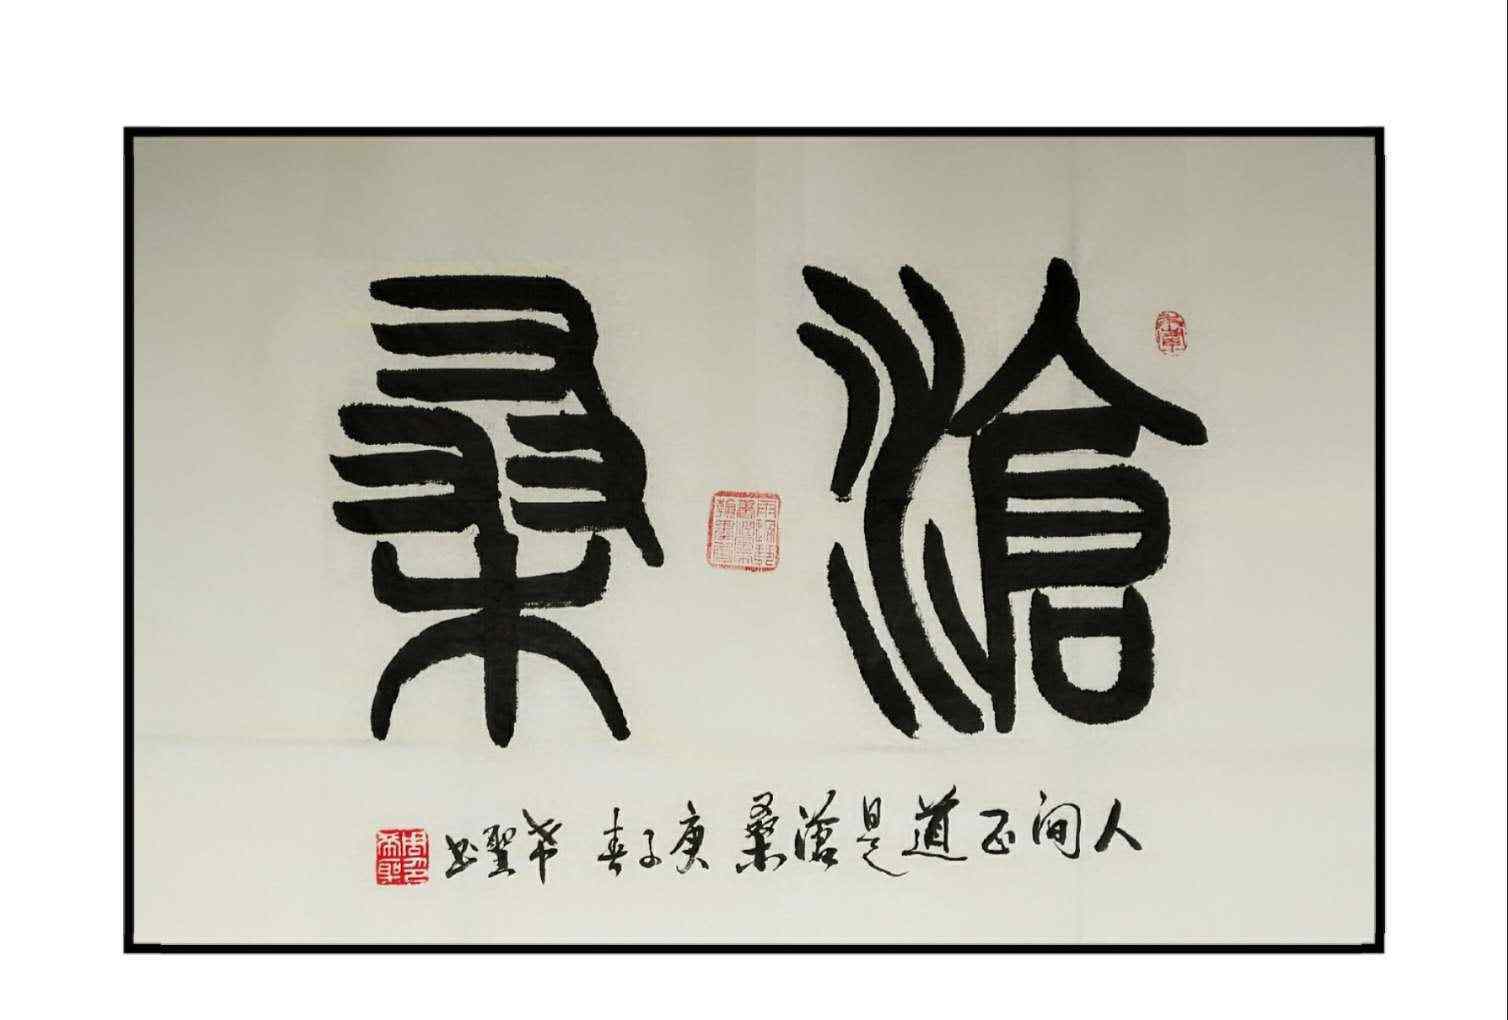 滄桑
人间正道是滄桑 庚子春 希聖书